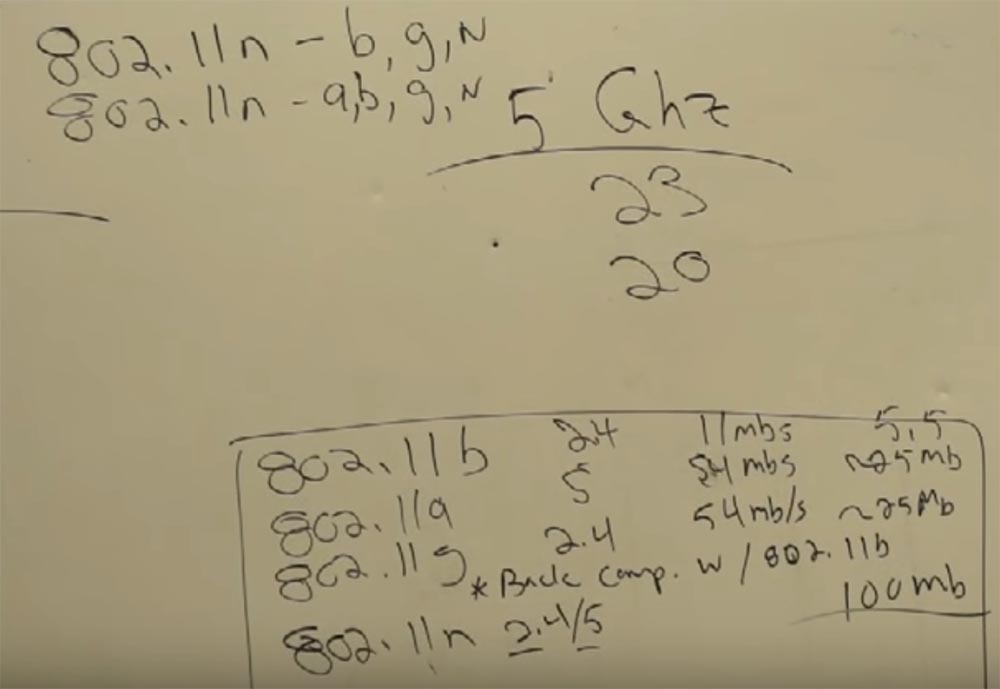 802.11n - b, g, N
802.11n - a,b, g, N
5 Ghz
23
20
802.11b 2.4 11mbs 5.5
802.11a 5 54mbs ~25Mb
802.11g 2.4 54mb/s ~25Mb
* Back Comp. w/802.11b
802.11n 2.4/5 100mb